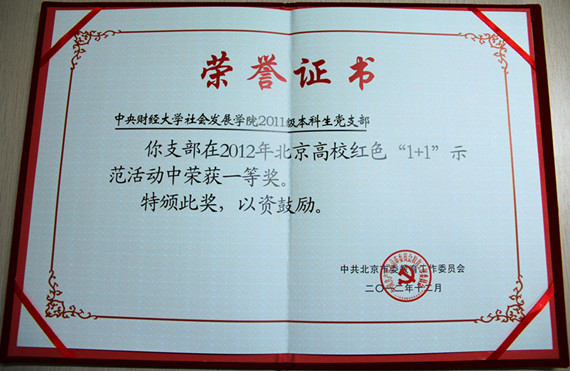 荣誉证书
中央财经大学社会发展学院2011级本科生党支部
你支部在2012年北京高校红色“1+1”示
范活动中荣获一等奖。
特颁此奖，以资鼓励。
中共北京市委教育工作委员会
二〇一二年十二月